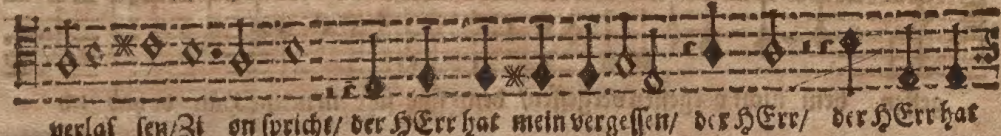 verlas sen/Zi on spricht/ der HErr hat mein vergessen/ der HErr/ der HErr hat